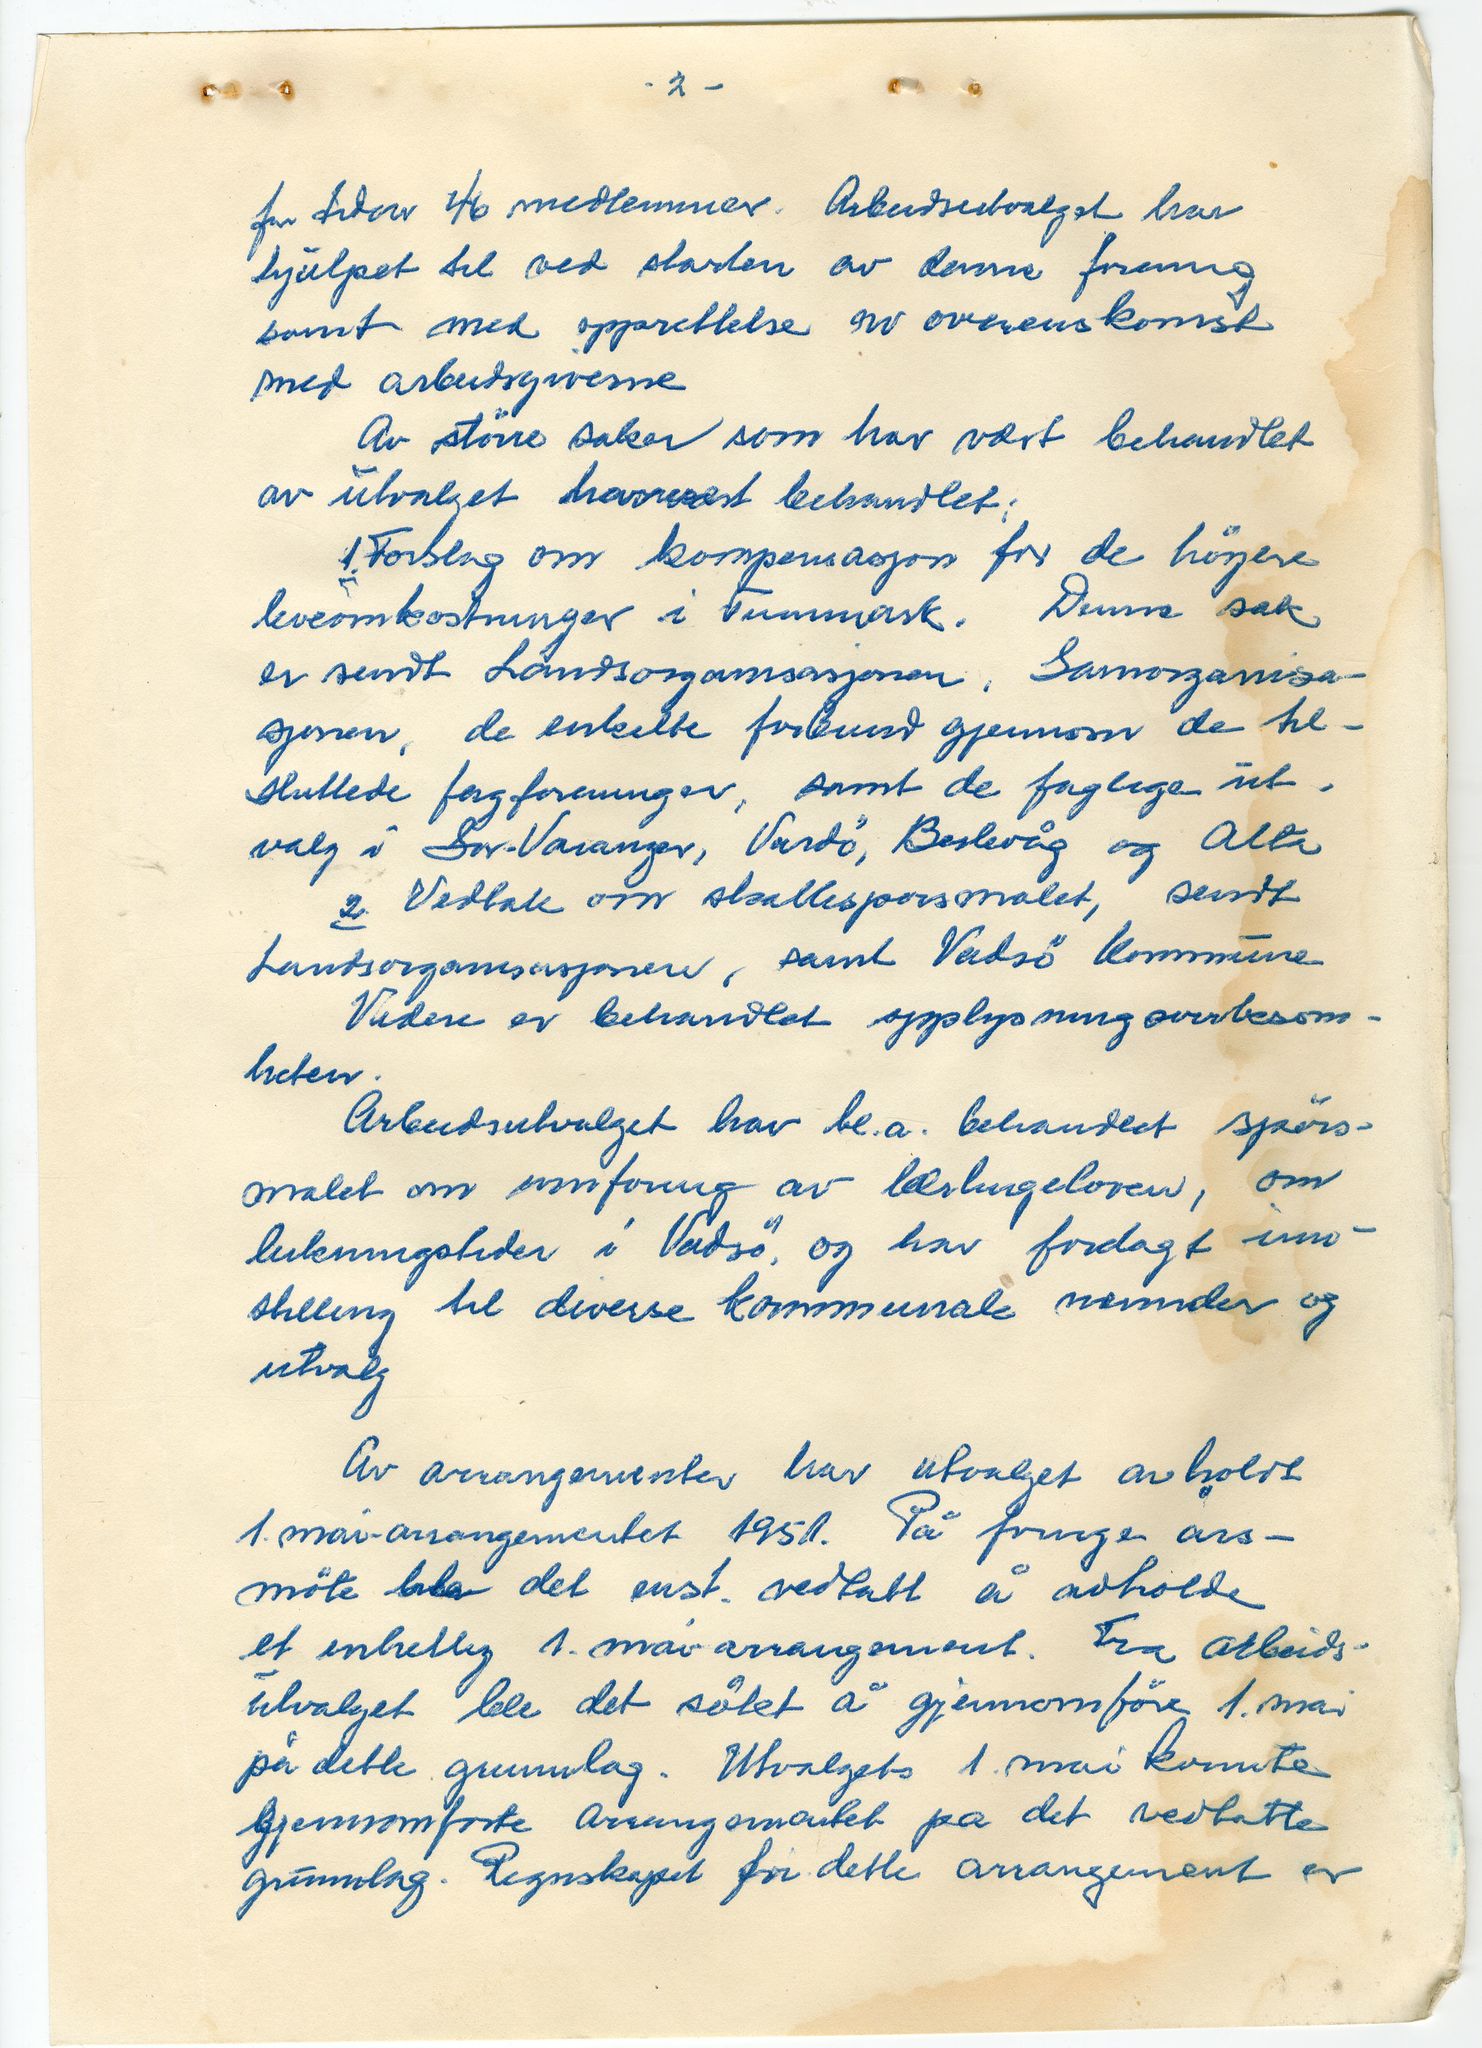 - 2 -
for tiden 46 medlemmer. Arbeidsutvalget har
hjulpet til ved starten av denne forening
samt med opprettelse av overenskomst
med arbeidsgiverne
Av större saker som har vært behandlet
av utvalget behandlet:
1. Forslag om kompensasjon for de höyere
leveomkostninger i Finnmark. Denne sak
er sendt Landsorganisasjonen, Samorganisa-
sjonen, de enkelte forbund gjennom de til-
sluttede fagforeninger, samt de faglige ut-
valg i Sör-Varanger, Vardö, Berlevåg og Alta
2. Vedtak om skattespörsmålet, sendt
Landsorganisasjonen, samt Vadsö Kommune
Videre er behandlet opplysningsvirksom-
heten.
Arbeidsutvalget har bl.a. behandlet spörs-
målet om innföring av lærlingeloven, om
lukningstider i Vadsö, og har foretatt inn-
stilling til diverse kommunale nemnder og
utvalg
Av arrangementer har utvalget avholdt
1. mai-arrangementet 1951. På forrige års-
möte ble det enst. vedtatt å avholde
et enhetlig 1. mai-arrangement. Fra arbeids-
utvalget ble det sökt å gjennomföre 1. mai
på dette grunnlag. Utvalgets 1. mai komite
gjennomförte arrangementet på det vedtatte
grunnlag. Regnskapet for dette arrangement er